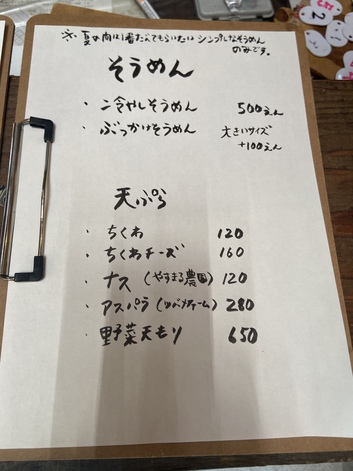 ※ 夏の内は1番だしてもらいたい シンプルなそうめん
のみです。
そうめん
・冷やしそうめん 500えん
・ぶっかけそうめん 大きいサイズ
+100えん
天ぷら
・ちくわ 120
・ちくわチーズ 160
・ナス (やすまる農園) 120
・アスパラ (ファーム) 280
・野菜天もり 650